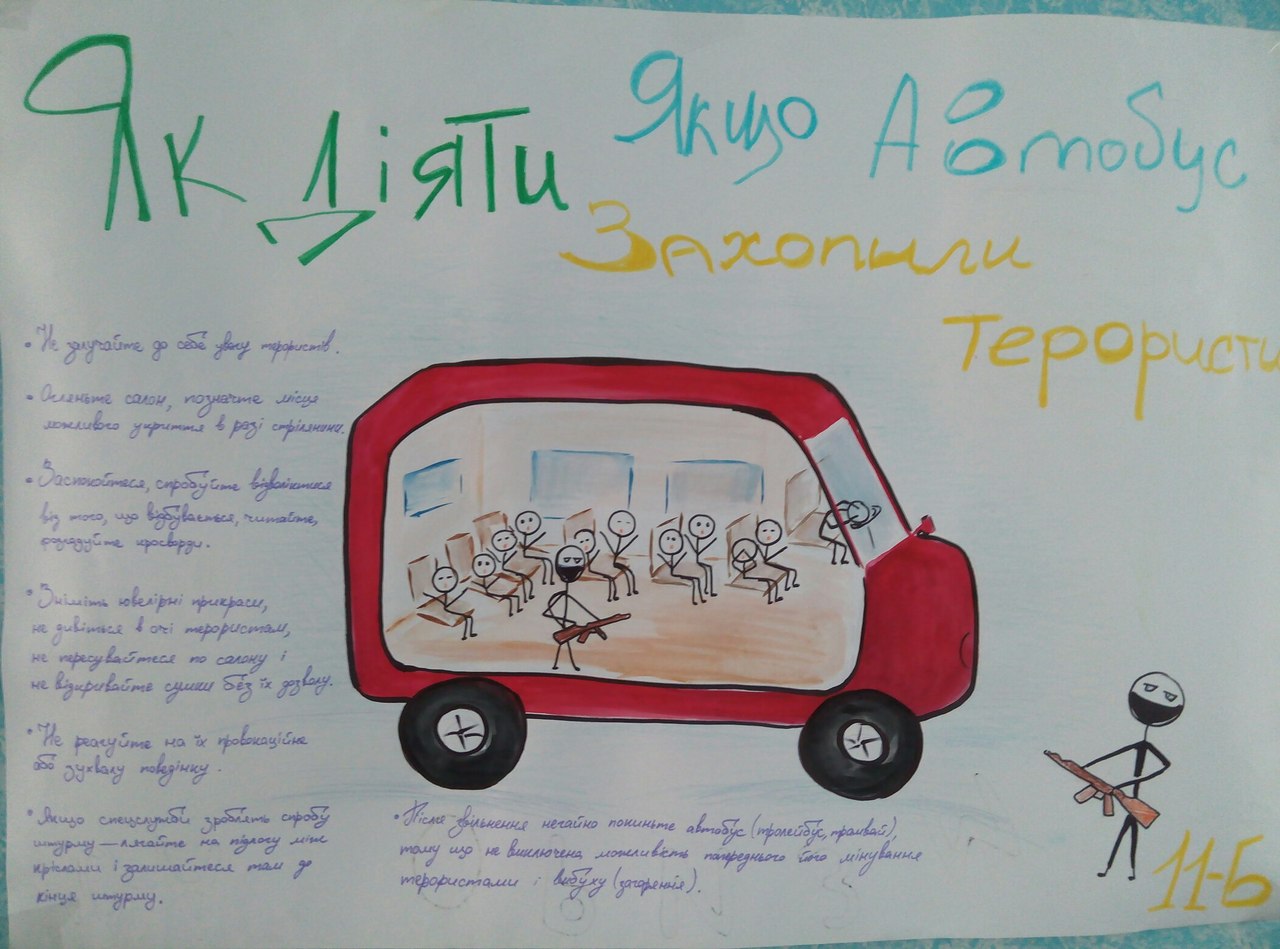 Як діяти
Якщо Автобус
Захопили
терористи
• Не залучайте до себе увагу терористів.
• Огляньте салон, позначте місця
можливого укриття в разі стрілянини.
• Заспокойтеся, спробуйте відволіктися
від того, що відбувається, читайте,
розгадуйте кросворди.
• Зніміть ювелірні прикраси,
не дивіться в очі терористам,
не пересувайтеся по салону і
не відкривайте сумки без їх дозволу.
• Не реагуйте на їх провокаційне
або зухвалу поведінку.
• Якщо спецслужби зроблять спробу
штурму — лягайте на підлогу між
кріслами і залишайтеся там до
кінця штурму.
• Після звільнення негайно покиньте автобус (тролейбус, трамвай),
тому що не виключена можливість попереднього його мінування
терористами і вибуху (загоряння).
11-Б